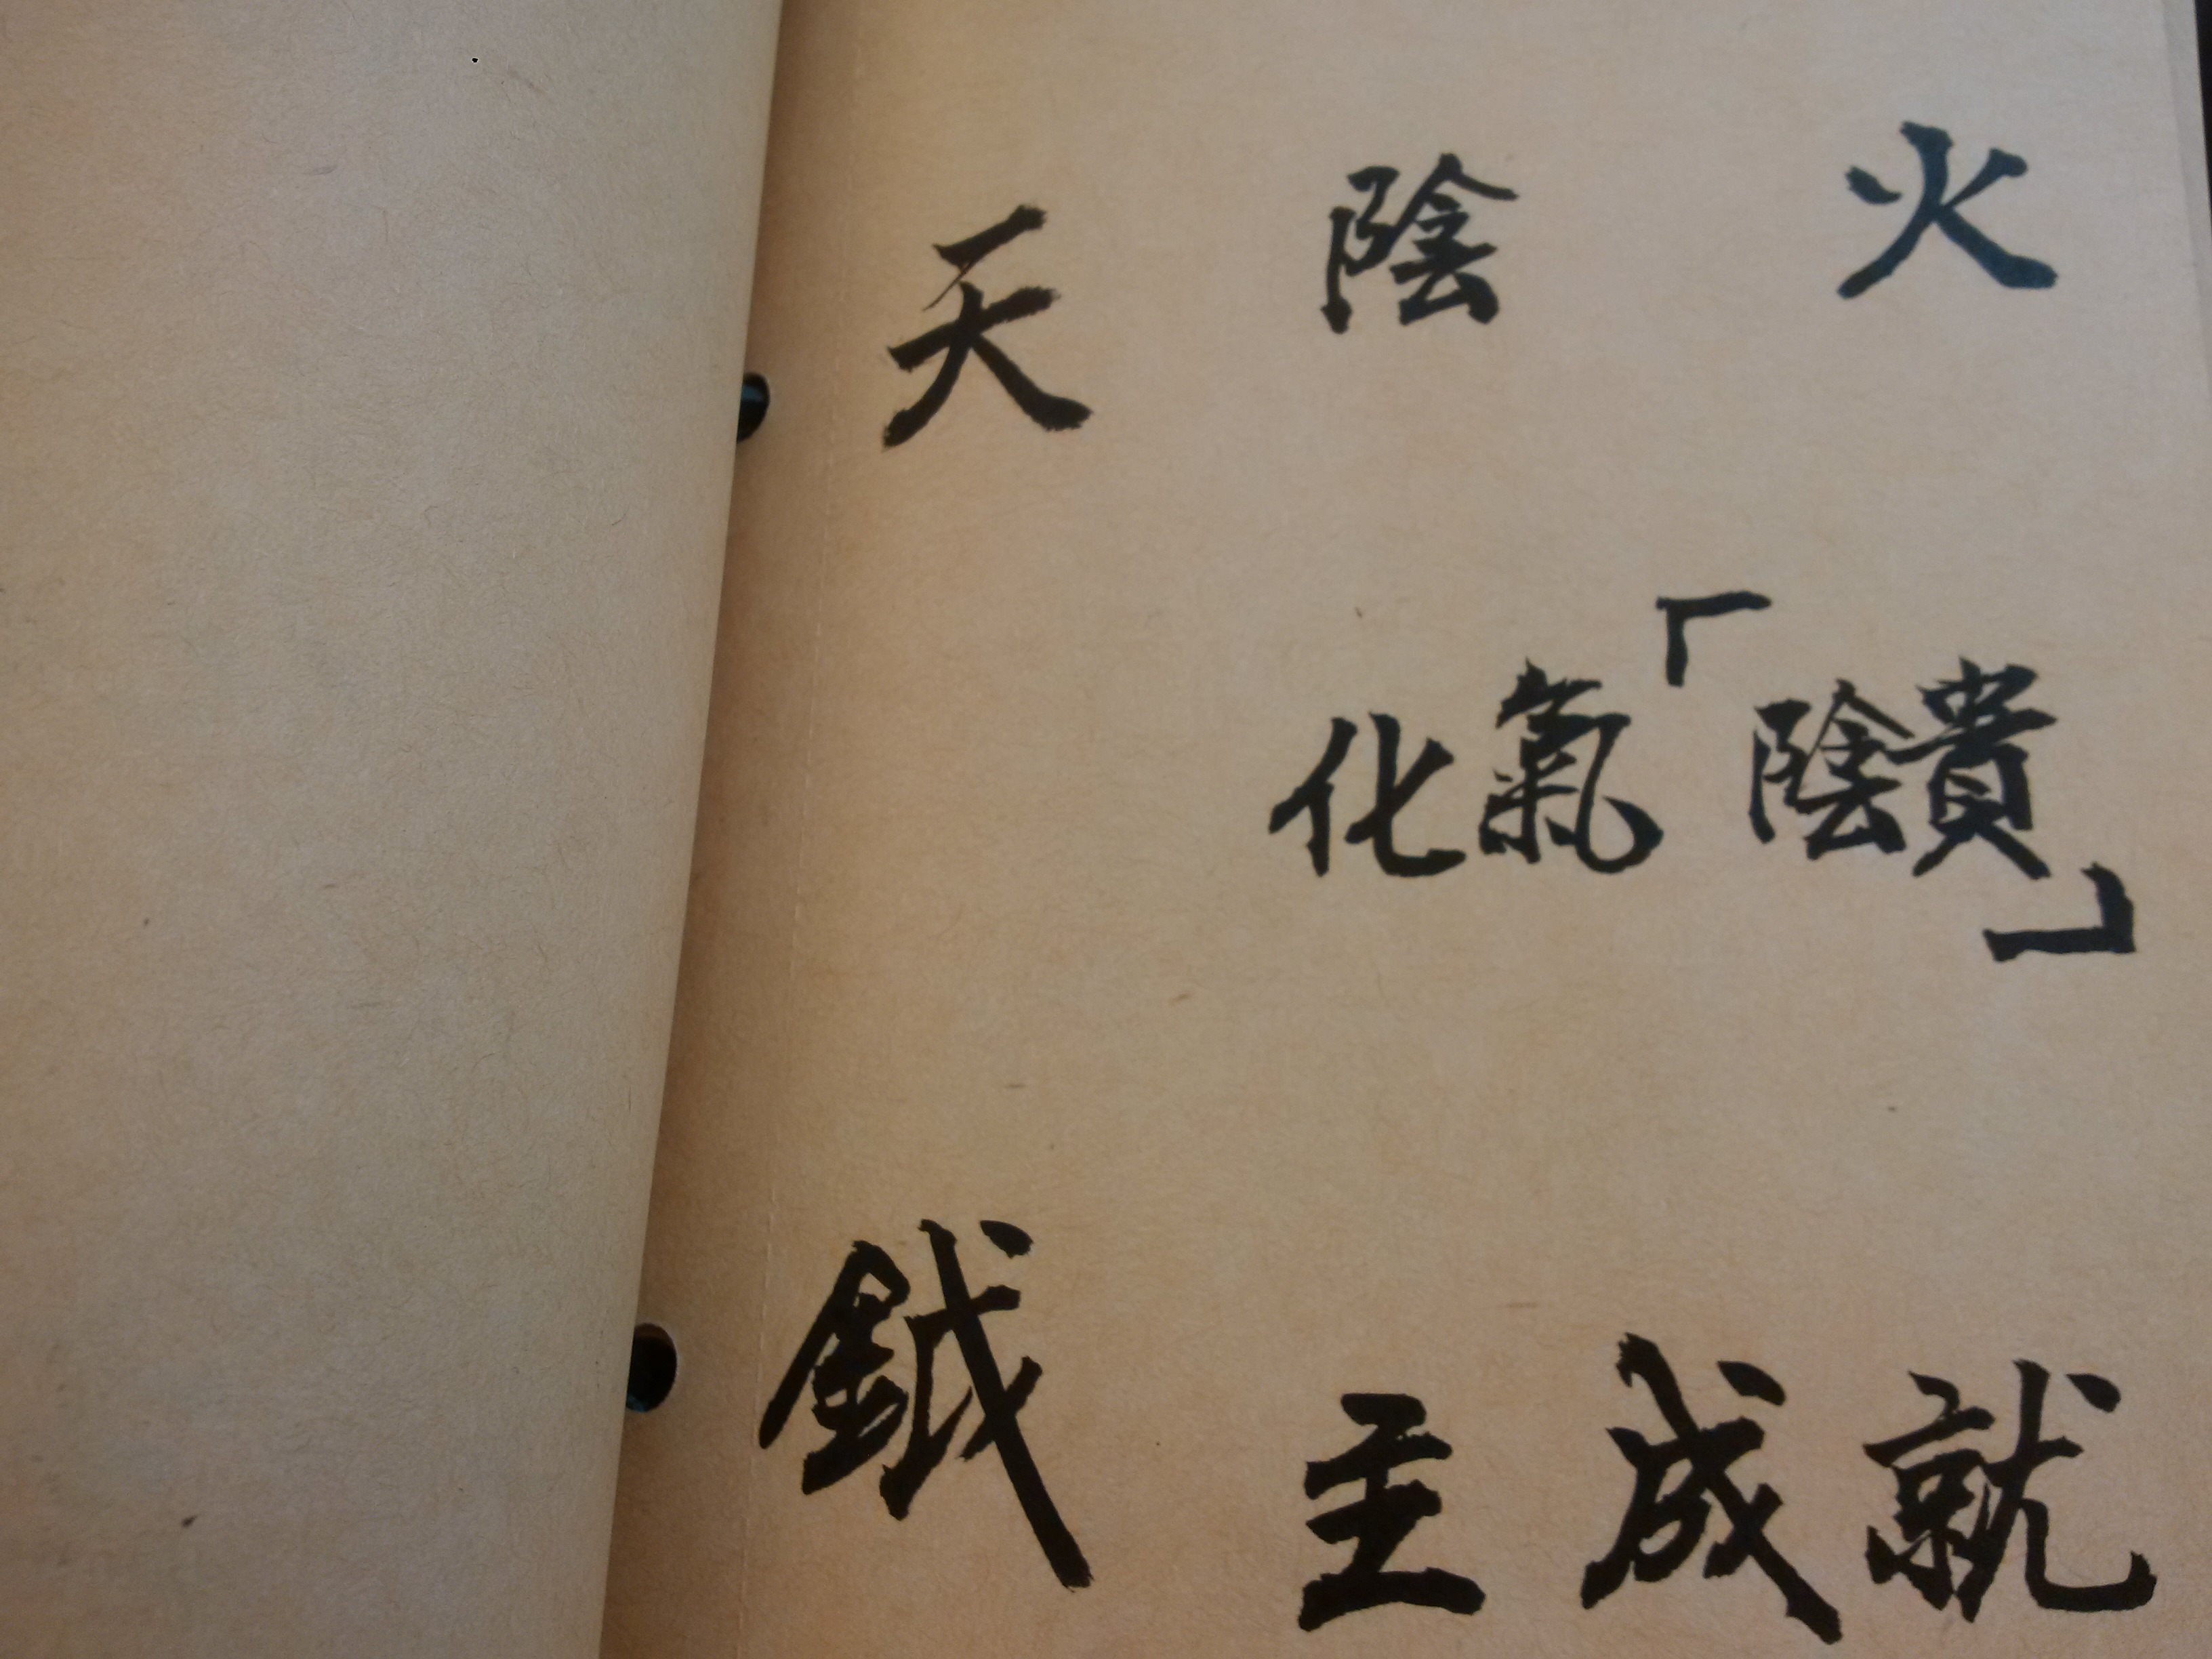 天鉞
陰火
化氣「陰貴」
主成就